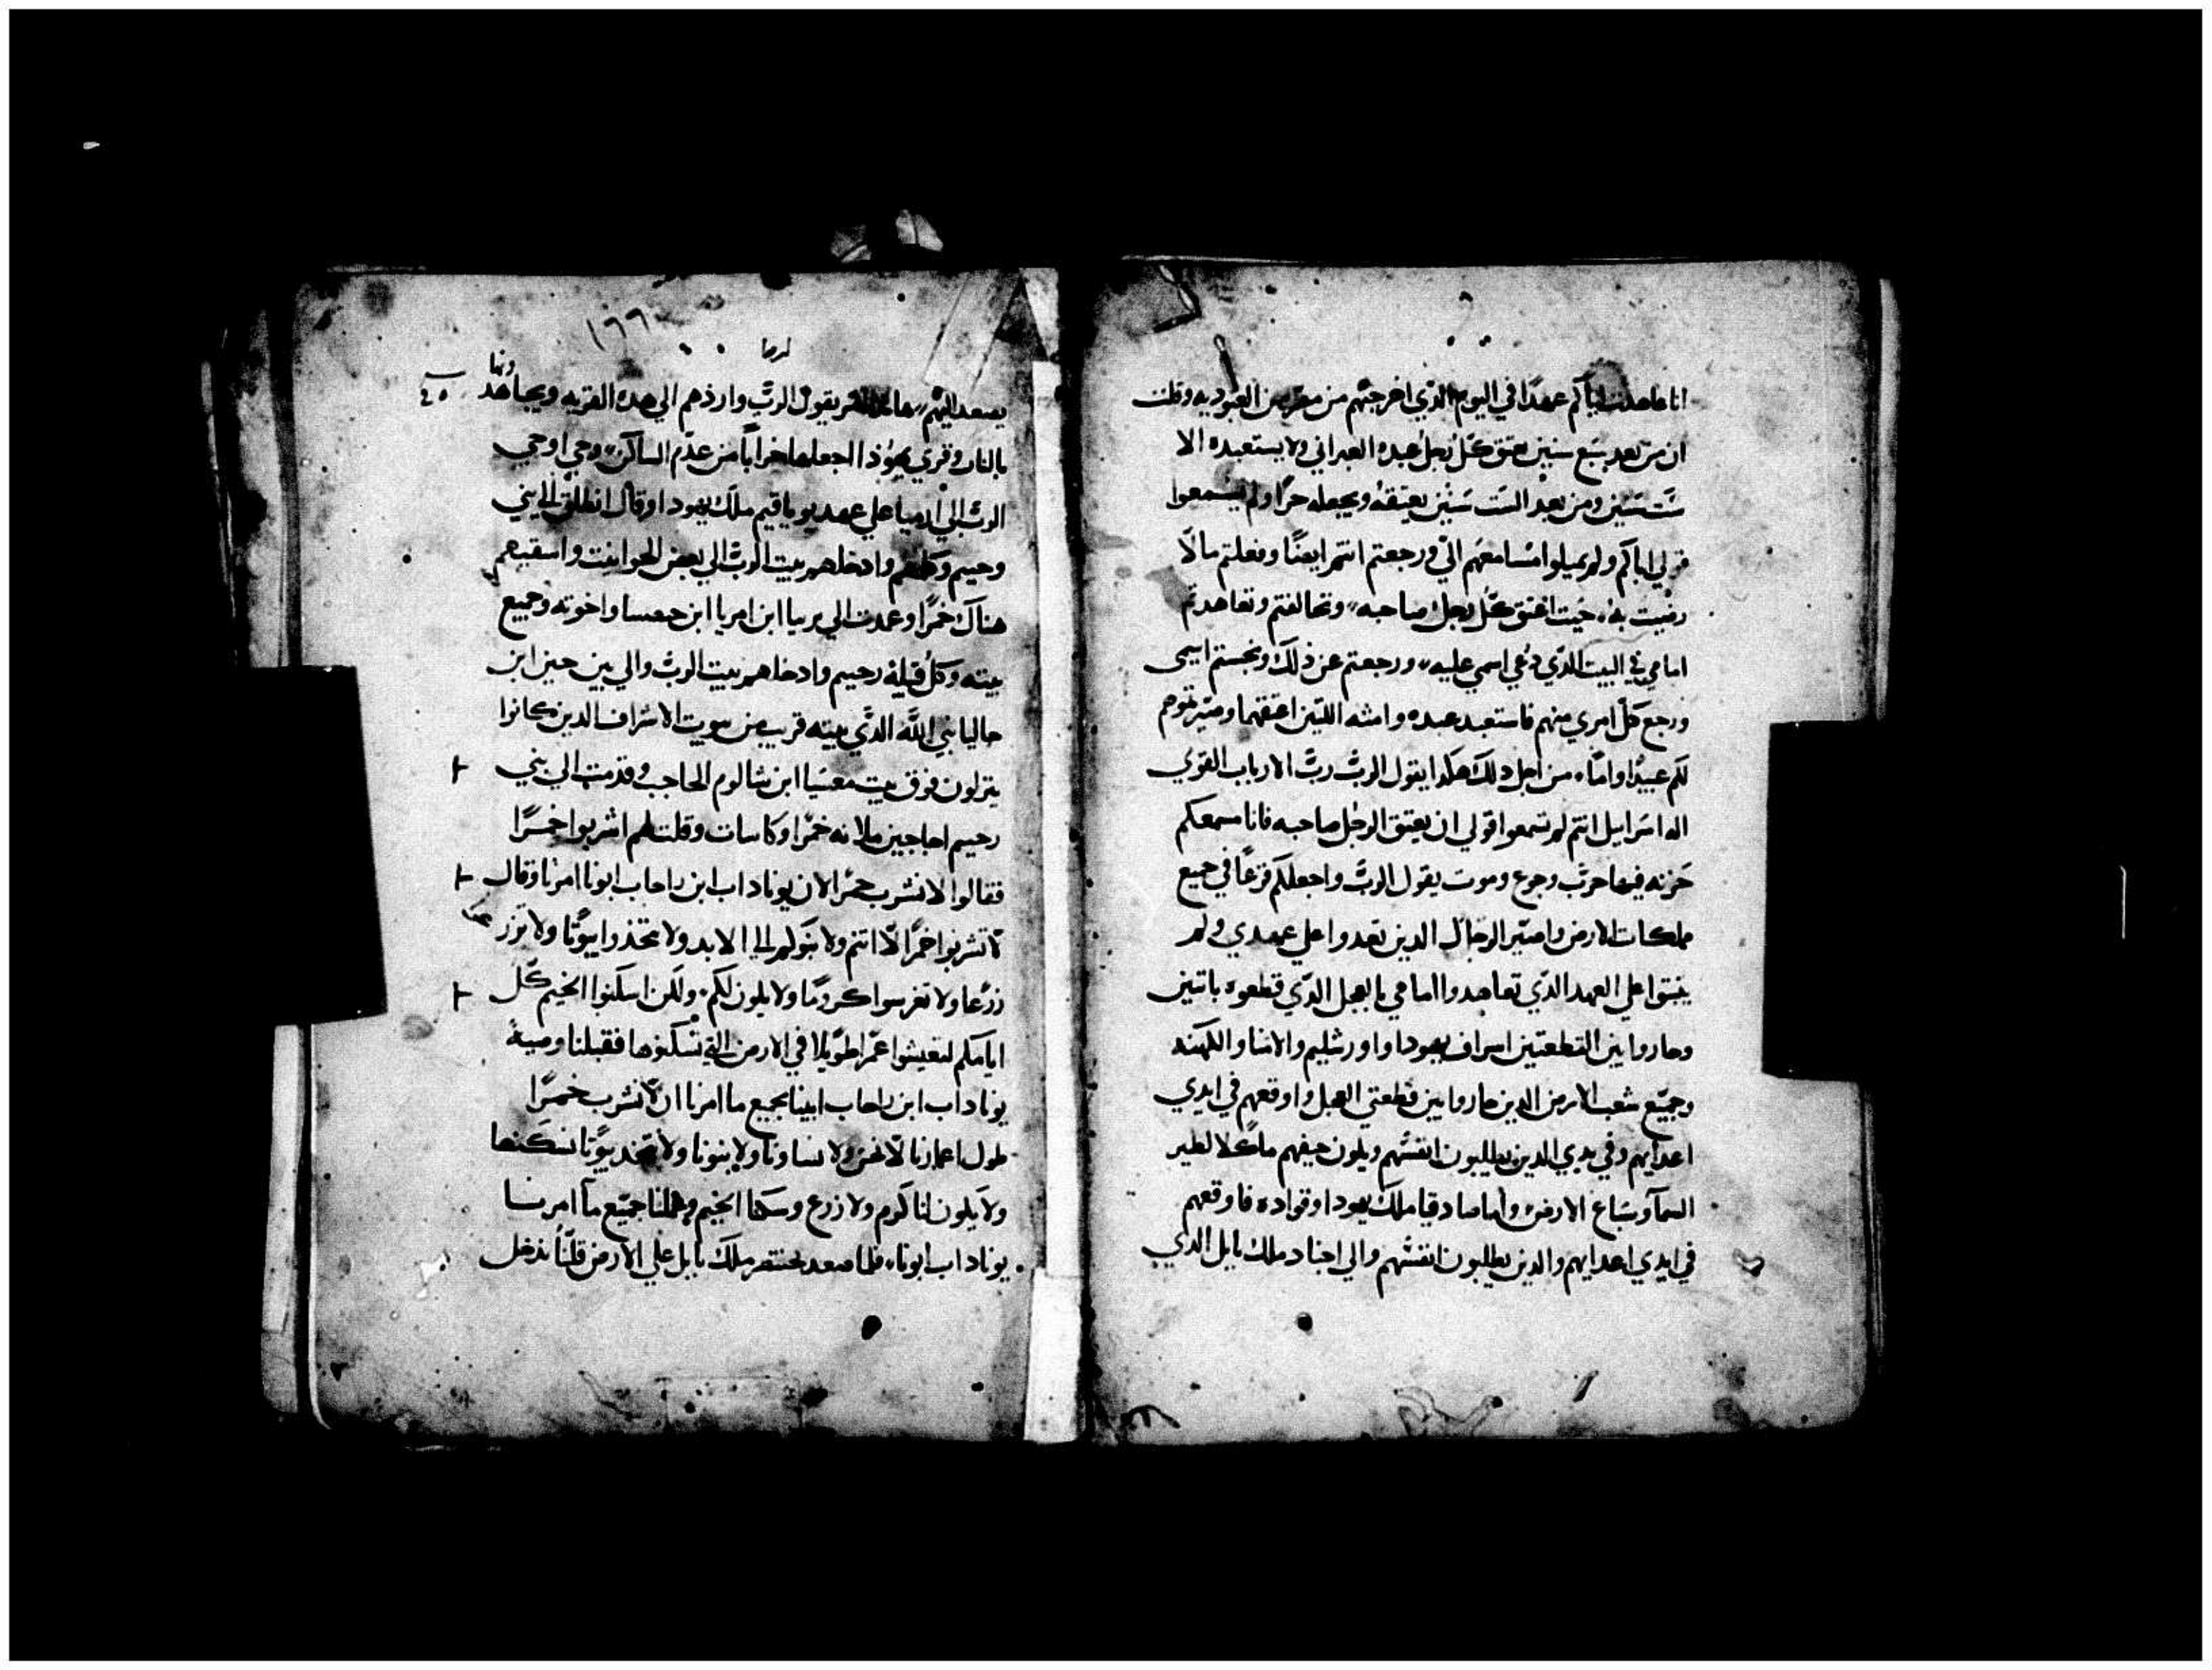 انا عاهدت اباكم عهدًا في اليوم الذي اخرجتهم من مصر من العبوديه وقلت
ان من بعد سبع سنين يعتق كل رجل عبده العبراني ولا يستعبده الا
ستّ سنين ومن بعد الست سنين يعتقه ويجعله حرًا ولم يسمعوا
قولي اباكم ولم يميلوا مسامعهم اليّ ورجعتم انتم ايضًا وفعلتم مالا
رضيت به حيت اعتق كل رجل صاحبه وتحالفتم وتعاهدتم
امامي في البيت الذي دعي اسمي عليه ورجعتم عن ذلك ونجستم اسمي
ورجع كل امري منهم فاستعبد عبده وامته اللتين اعتقهما وصيرتموهم
لكم عبيدًا واماء من اجل دلك هكدا يقول الربّ ربّ الارباب القوي
اله اسراييل انتم لم تسمعوا قولي ان يعتق الرجل صاحبه فانا مسمعكم
حزنه فيها حرب وجوع وموت يقول الربّ واجعلكم فزعًا في جميع
مملكات الارض واصيّر الرجال الدين تعدوا علي عهدي ولم
يثبتوا علي العهد الذي تعاهدوا امامي بالعجل الذي قطعوه باتنين
وجازوا بين القطعتين اسراف يهودا واورشليم والامنا والكهنه
وجميع شعب الارض الدين جازوا بين قطعتي العجل واوقعهم في ايدي
اعدايهم وفي يدي الدين يطلبون انفسهم ويكون جيفهم ماكلا لطير
السما وسباع الارض واما صادقيا ملك يهودا وقواده فاوقعهم
في ايدي اعدايهم والدين يطلبون انفسهم والي اجناد ملك بابل الدي
١٦٦
ارميا
يصعد اليهم يقول الربّ واردهم الي هده القريه ويجاهدونها
بالنار وقري يهوذا اجعلها خرابًا من عدم الساكن وحي اوحي
الربّ الي ارميا علي عهد يوياقيم ملك يهودا وقال انطلق الي بني
رحيم وكلمهم وادخلهم بيت الربّ الي بعض الحوانيت واسقيهم
هناك خمرًا وعمدت الي يربيا ابن امريا ابن حبصسا واخوته وجميع
بيته وكل قبيلة رحيم وادخلتهم بيت الربّ والي بين حبن ابن
حاليا نبي اللّه الدي بيته قريب من بيوت الاشراف الدين كانوا
ينزلون فوق بيت معسيا ابن شالوم الحاجب وقدمت الي بني
رحيم اجاجين ملانه خمرًا وكاسات وقلت لهم اشربوا خمرًا
فقالوا لا نشرب خمرًا لان يوناداب ابن راحاب ابونا امرنا وقال
لا تشربوا خمرًا لا انتم ولا بنوكم الي الابد ولا تتخذوا بيوتًا ولا تزرعوا
زرعا ولا تغرسوا كرومًا ولا يكون لكم ولكن اسكنوا الخيم كل
ايامكم لتعيشوا عمرًا طويلا في الارض التي تسكنوها فقبلنا وصية
يوناداب ابن راحاب ابينا بجميع ما امرنا ان لا نشرب خمرًا
طول اعمارنا لا نحن ولا نساونا ولا بنونا ولا نتخد بيوتًا نسكنها
ولا يكون لنا كروم ولا زرع وسكنا الخيم وعملنا جميع ما امرنا
يوناداب ابونا فلما صعد بختنصر ملك بابل علي الارض قلنا ندخل